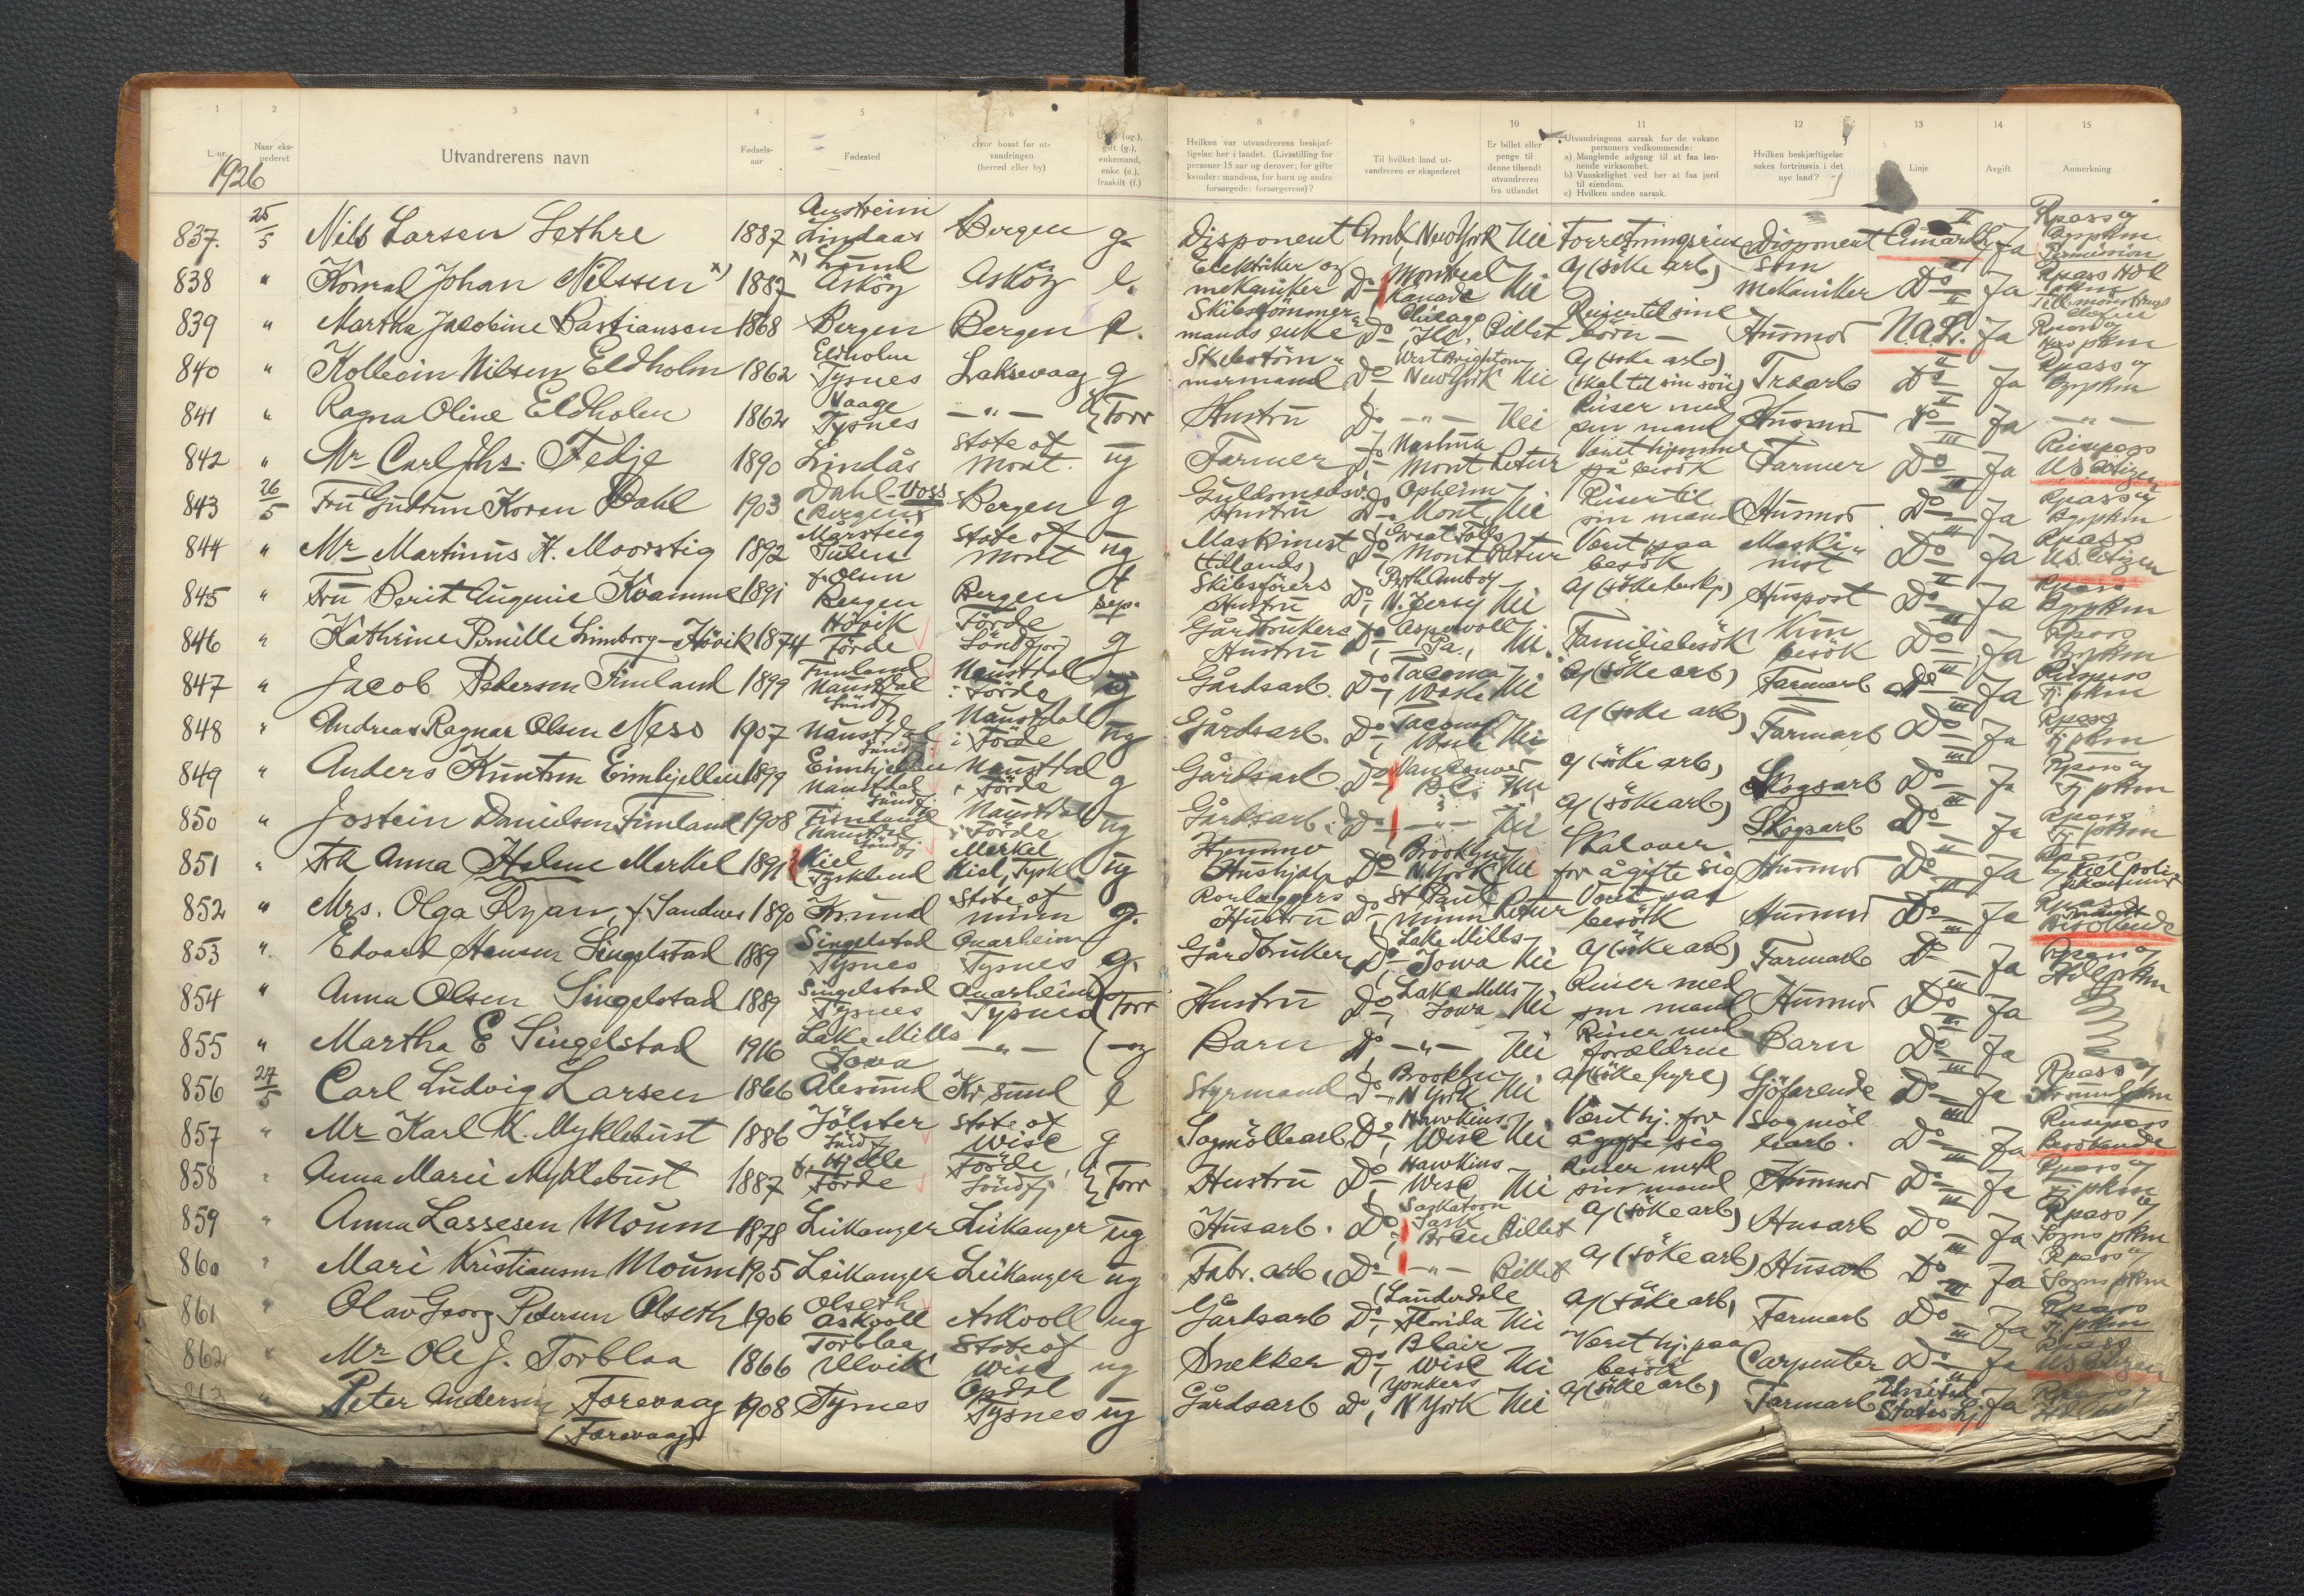 1 2 3 4 5 6 8 9 10 11 12 13 14 15
L.-nr. Naar eks-pederet Utvandrerens navn Fødsels-aar Fødested Hvor bosat før ut-vandringen (herred eller by) gift (g.), enkemand, enke (e.), fraskilt (f.)
Hvilken var utvandrerens beskjæf-tigelse her i landet. (Livsstilling for personer 15 aar og derover; for gifte kvinder: mandens, for børn og andre forsørgede: forsørgerens)? Til hvilket land ut-vandreren er ekspederet Er billet eller penge til denne tilsendt utvandreren fra utlandet Utvandringens aarsak for de voksne personers vedkommende: a) Manglende adgang til at faa løn-nende virksomhet. b) Vanskelighet ved her at faa jord til eiendom. c) Hvilken anden aarsak. Hvilken beskjæftigelse søkes fortrinsvis i det nye land? Linje Avgift Anmerkning
1926
837. 25/5 Nils Larsen Lethre 1887 Austreim Lindaas Bergen g. Disponent New York Nei Forretningsreise Disponent Ja Rpass og Bgpkm
838 " Konrad Johan Nilssen x) 1887 x) Lund Asköy Asköy e. Elektriker og mekaniker Do Montreal Kanada Nei a) (söke arb) som mekaniker Do Ja Rpass
839 " Martha Jacobine Bastiansen 1868 Bergen Bergen e. Skibstömmermands enke Do, Chicago Ill. Billet Reiser til sine börn Husmor N.A.L. Ja Rpass og pkm
840 " Kolbein Nilsen Eldholm 1862 Eldholm Tysnes Laksevaag g Skibstömmermand Do West Brighton New York Nei a) (söke arb) (skal til sin sön) Træarb Do Ja Rpass og Bgpkm
841 " Ragna Oline Eldholm 1862 Vaage Tysnes — " — g forr Hustru Do — " — Nei Reiser med sin mand Husmor Do Ja — " —
842 " Mr Carl Jhs. Fedje 1890 Lindås State of Mont. ug Farmer Do Mont Retur Været hjemme på besök Farmer Do Ja Reisepass US Citizen
843 26/5 Fru Gudrun Koren Dahl 1903 Dahl-Voss (Bergen) Bergen g Guldsmedsv. Hustru Do Opheim Mont, Nei Reiser til sin mand Husmor Do Ja Rpass og Bgpkm
844 " Mr Martinus H. Moorstig 1892 Mårstieg State of Mont ug Maskinist (tillands) Do Great Falls Mont Retur Været paa besök Maskinist Do Ja Rpass US Citizen
845 " Fru Berit Augenie Kvamme 1891 f. Olsen Bergen Bergen f sep. Skibsförers Hustru Do, Perth Amboy N. Jersey Nei Huspost Do Ja Rpass Bgpkm
846 " Kathrine Pernille Limborg-Hövik 1874 Hövik Förde Förde Söndfjord g Gårdbrukers Hustru Do, Pa., Nei. Familiebesök Kun besök Do Ja Rpass Bgpkm
847 " Jacob Pedersen Fimland 1899 Fimland Naustdal Sündfj Naustdal i Förde ug Gårdsarb. Do, Tacoma Wash Nei a) (söke arb) Farmarb Do Ja Rpass Fj pkm
848 " Andreas Ragnar Olsen Ness 1907 Naustdal Sündfj Naustdal i Förde ug Gårdsarb. Do, Tacoma Wash Nei a) (söke arb) Farmarb Do Ja Rpass Fj pkm
849 " Anders Knutsen Eimhjellen 1899 Eimhjellen Naustdal Sündfj Naustdal i Förde g Gårdsarb Do, Vancouver B.C. Nei a) (söke arb) Skogsarb Do Ja Rpass og Fj pkm
850 " Jostein Danielsen Fimland 1908 Fimland Naustdal Sündfj Naustdal i Förde ug Gårdsarb. Do — " — Nei a) (söke arb) Skogsarb Do Ja Rpass Fj pkm
851 " Frk Anna Helene Merkel 1891 Kiel Tyskland Merkel Kiel, Tyskl. ug Hushjelp Do Brooklyn N York Nei Skal over for å gifte sig Husmor Do Ja Rpass
852 " Mrs. Olga Ryan, f. Sandnes 1890 State of Minn g. Hustru Do, St Paul Minn Retur Været paa besök Husmor Do Ja Rpass Besökende
853 " Edvard Hansen Singelstad 1889 Singelstad Tysnes Onarheim Tysnes g. Gårdbruker Do Lake Mills Iowa Nei a) (söke arb) Farmarb Do Ja Rpass og
854 " Anna Olsen Singelstad 1889 Singelstad Tysnes Onarheim Tysnes g forr Hustru Do, Lake Mills Iowa Nei Reiser med sin mand Husmor Do Ja
855 " Martha E Singelstad 1916 Lake Mills Iowa — " — ug Barn Do — " — Nei Reiser med forældrene Barn Do Ja
856 27/5 Carl Ludvig Larsen 1866 Ålesund Kr.sund e Styrmand Do, Brooklyn N York Nei a) (söke hyre) Sjöfarende Do Ja Rpass og Kr.sund pkm
857 " Mr Karl M. Myklebust 1886 Jölster Sündfj State of Wisc g Sagmöllearb Do, Hawkins Wisc Nei Været hj. for å gifte sig Sagmöllearb. Do Ja Reisepass Besökende
858 " Anna Marie Myklebust 1887 f. Hjelle Förde Förde, Söndfj g forr Hustru Do Hawkins Wisc Nei Reiser med sin mand Husmor Do Ja Rpass og Fj pkm
859 " Anna Lassesen Moum 1878 Leikanger Leikanger ug Husarb. Do, Saskatoon Sask Billet a) (söke arb) Husarb Do Ja Rpass og Sogns pkm
860 " Mari Kristiansen Moum 1905 Leikanger Leikanger ug Fabr. arb. Do — " — Billet a) (söke arb) Husarb Do Ja Rpass og Sogns pkm
861 " Olav Georg Pedersen Olseth 1906 Olseth Askvoll Askvoll ug Gårdsarb Do, Lauderdale Florida Nei a) (söke arb) Farmarb Do Ja Rpass Fj pkm
862 " Mr Ole J. Torblaa 1866 Torblaa Ulvik State of Wisc ug Snekker Do, Blair Wisc Nei Været hj. paa besök Carpenter Do Ja Rpass US Citizen
863 " Peter Andersen Forevaag (Færevaag) 1908 Tysnes Opdal Tysnes ug Gårdsarb do, Yonkers N York Nei a) (söke arb) Farmarb United States Lj. Ja Rpass